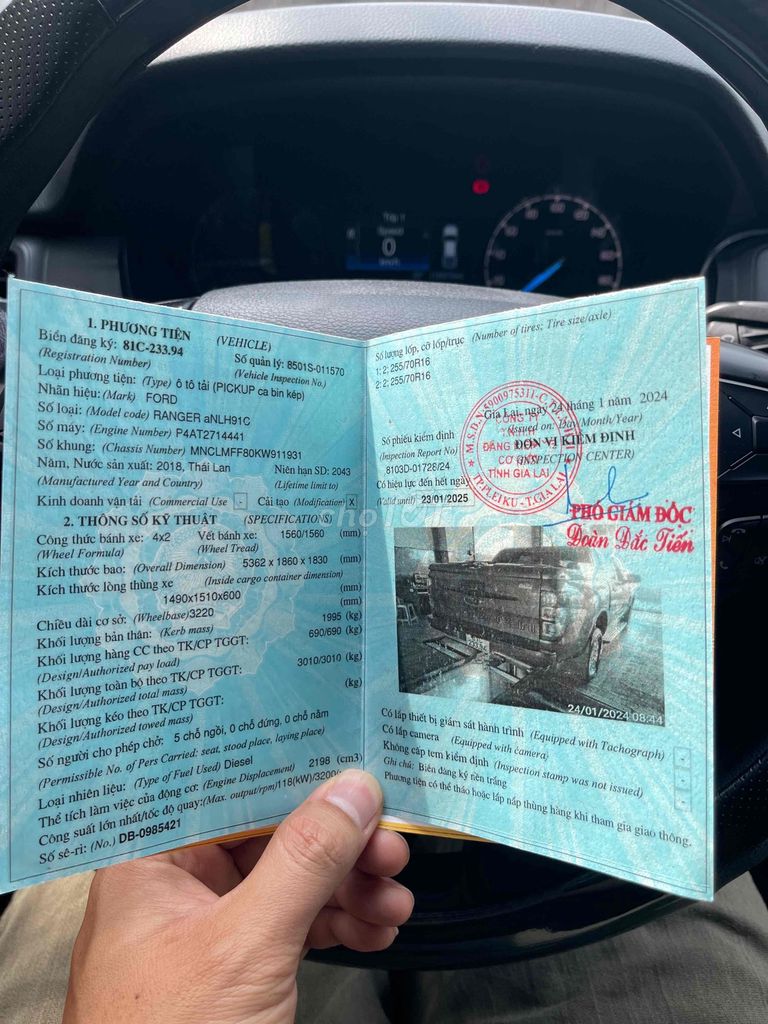 Trip 1
Speed
0
km/h
1. PHƯƠNG TIỆN (VEHICLE)
Biển đăng ký: 81C-233.94
(Registration Number)
Số quản lý: 8501S-011570
(Vehicle Inspection No.)
Loại phương tiện: (Type) ô tô tải (PICKUP ca bin kép)
Nhãn hiệu: (Mark) FORD
Số loại: (Model code) RANGER aNLH91C
Số máy: (Engine Number) P4AT2714441
Số khung: (Chassis Number) MNCLMFF80KW911931
Năm, Nước sản xuất: 2018, Thái Lan Niên hạn SD: 2043
(Manufactured Year and Country) (Lifetime limit to)
Kinh doanh vận tải (Commercial Use - Cải tạo (Modification) X
2. THÔNG SỐ KỸ THUẬT (SPECIFICATIONS)
Công thức bánh xe: 4x2 Vết bánh xe: 1560/1560 (mm)
(Wheel Formula) (Wheel Tread)
Kích thước bao: (Overall Dimension) 5362 x 1860 x 1830 (mm)
Kích thước lòng thùng xe (Inside cargo container dimension)
1490x1510x600 (mm)
Chiều dài cơ sở: (Wheelbase)3220 (mm)
Khối lượng bản thân: (Kerb mass) 1995 (kg)
Khối lượng hàng CC theo TK/CP TGGT: 690/690 (kg)
(Design/Authorized pay load)
Khối lượng toàn bộ theo TK/CP TGGT: 3010/3010 (kg)
(Design/Authorized total mass)
Khối lượng kéo theo TK/CP TGGT: (kg)
(Design/Authorized towed mass)
Số người cho phép chở: 5 chỗ ngồi, 0 chỗ đứng, 0 chỗ nằm
(Permissible No. of Pers Carried: seat, stood place, laying place)
Loại nhiên liệu: (Type of Fuel Used) Diesel
Thể tích làm việc của động cơ: (Engine Displacement) 2198 (cm3)
Công suất lớn nhất/tốc độ quay:(Max. output/rpm)118(kW)/3200
Số sê-ri: (No.) DB-0985421
Số lượng lốp, cỡ lốp/trục (Number of tires; Tire size/axle)
1: 2; 255/70R16
2: 2; 255/70R16
Gia Lai, ngày 24 tháng 1 năm 2024
(Issued on: Day/Month/Year)
Số phiếu kiểm định ĐƠN VỊ KIỂM ĐỊNH
(Inspection Report No) (INSPECTION CENTER)
8103D-01728/24
Có hiệu lực đến hết ngày
(Valid until) 23/01/2025
CÔNG TY
TNHH
ĐĂNG
CƠ
TỈNH GIA LAI
TP.PLEIKU - T.GIA LAI
PHÓ GIÁM ĐỐC
Đoàn Đắc Tiến
24/01/2024 08:44
Có lắp thiết bị giám sát hành trình (Equipped with Tachograph) -
Có lắp camera (Equipped with camera) -
Không cấp tem kiểm định (Inspection stamp was not issued) -
Ghi chú: Biển đăng ký nền trắng
Phương tiện có thể tháo hoặc lắp nắp thùng hàng khi tham gia giao thông.